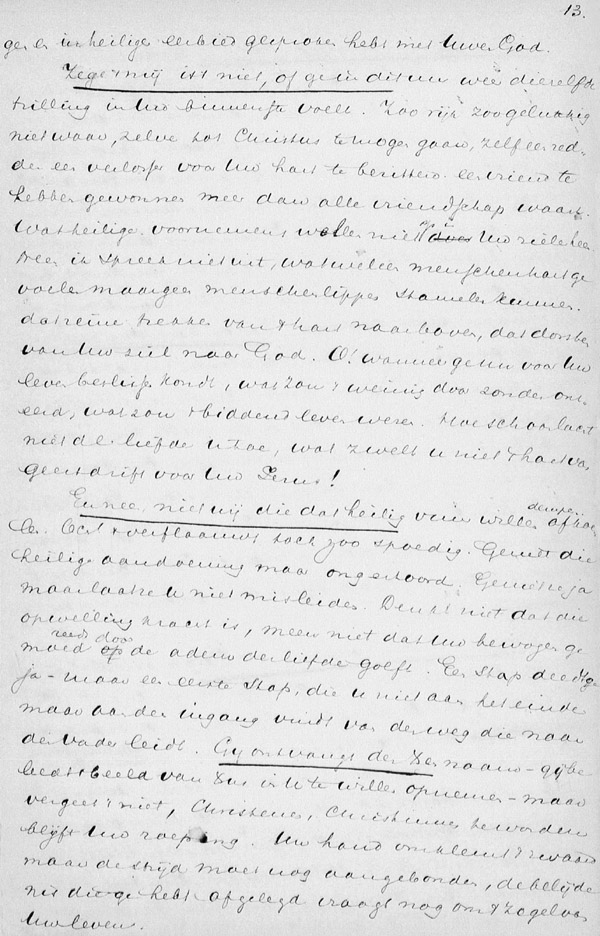 13.
ger er in heilige eerbied gesproken hebt met Uwen God.
Zegt mij is't niet, of ge in dit uur weer diezelfde
trilling in Uw binnenste voelt. Zoo rijk zoo gelukkig
niet waar, zelve tot Christus te mogen gaan, zelf een red-
der een verlosser voor Uw hart te bezitten een vriend te
hebben gewonnen meer dan alle vriendschap waard.
Wat heilige voornemens wellen niet op in Uw ziele
Neen ik spreek niet uit, wat wel een menschenhart ge
voelen maar geen menschenlippen stamelen kunnen.
dat reine trekken van 't hart naar boven, dat dorsten
van Uw ziel naar God. O! wanneer ge nu voor Uw
leven beslissen kondt, wat zou 't weinig door zonde ont-
eerd, wat zou 't biddend leven wezen. Hoe schoon lacht
niet de liefde U toe, wat zwelt u niet 't hart van
geestdrift voor Uw Jezus!
En nee, niet wij die dat heilig vuur willen dempen.
Och 't verflauwt toch zoo spoedig. Geniet die
heilige aandoening maar ongestoord. Geniet ze ja
maar laat ze U niet misleiden. Denkt niet dat die
opwelling kracht is, meen niet dat Uw bewogen ge
moed reeds door de adem der liefde golft. Een stap deedt ge
ja - maar een eerste stap, die u niet aan het einde
maar aan den ingang vindt van den weg die naar
den Vader leidt. Gij ontvangt den Naam - gij be
leedt 't beeld van Jezus in U te willen opnemen - maar
vergeet 't niet, Christenen, Christinnen te worden
blijft Uw roeping. Uw hand omklemt 't zwaard
maar de strijd moet nog aangebonden, de belijde
nis die ge hebt afgelegd vraagt nog om 't zegel van
Uw leven.